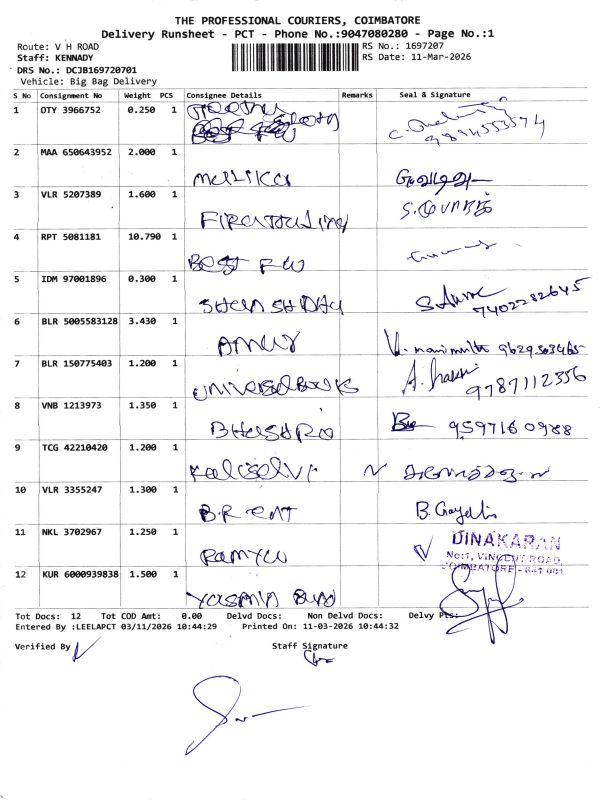 THE PROFESSIONAL COURIERS, COIMBATORE
Delivery Runsheet - PCT - Phone No.:9047080280 - Page No.:1
Route: V H ROAD
Staff: KENNADY
DRS No.: DCJB169720701
Vehicle: Big Bag Delivery
RS No.: 1697207
RS Date: 11-Mar-2026
S No Consignment No Weight PCS Consignee Details Remarks Seal & Signature
1 OTY 3966752 0.250 1 9894553574
2 MAA 650643952 2.000 1 mallika
3 VLR 5207389 1.600 1
4 RPT 5081181 10.790 1 BEST FW
5 IDM 97001896 0.300 1 7402282645
6 BLR 5005583128 3.430 1
7 BLR 150775403 1.200 1 universal Books 9787112356
8 VNB 1213973 1.350 1 959716 0988
9 TCG 42210420 1.200 1 Kaliselvi
10 VLR 3355247 1.300 1 B.R ENT B. Gayathri
11 NKL 3702967 1.250 1 Ramya DINAKARAN
No:1, VINCENT ROAD,
COIMBATORE - 641 001
12 KUR 6000939838 1.500 1 Yasmin
Tot Docs: 12 Tot COD Amt: 0.00 Delvd Docs: Non Delvd Docs: Delvy Pts:
Entered By :LEELAPCT 03/11/2026 10:44:29 Printed On: 11-03-2026 10:44:32
Verified By Staff Signature